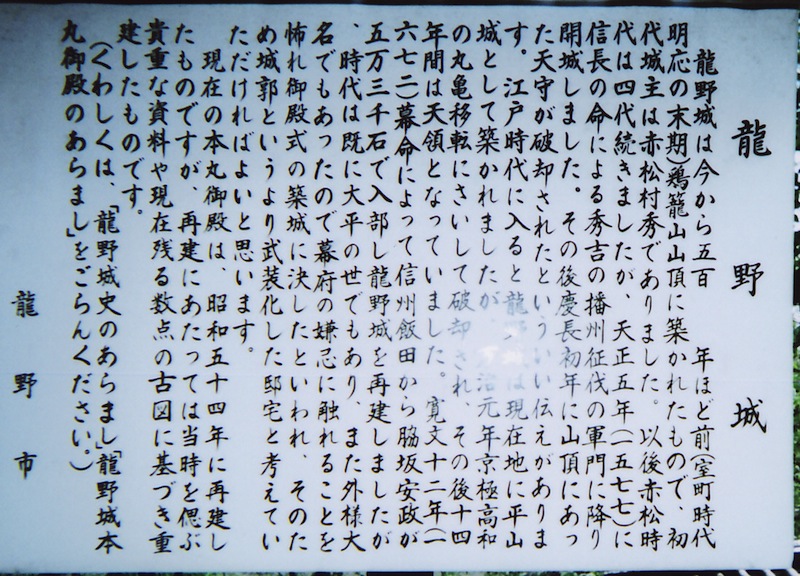 龍野城
龍野城は今から五百 年ほど前(室町時代
明応の末期)鶏籠山山頂に築かれたもので、初
代城主は赤松村秀でありました。以後赤松時
代は四代続きましたが、天正五年(一五七七)に
信長の命による秀吉の播州征伐の軍門に降り
開城しました。その後慶長初年に山頂にあっ
た天守が破却されたといういい伝えがありま
す。江戸時代に入ると龍野城は現在地に平山
城として築かれましたが、 治元年京極高和
の丸亀移転にさいして破却され、その後十四
年間は天領となっていました。寛文十二年(一
六七二)幕命によって信州飯田から脇坂安政が
五万三千石で入部し龍野城を再建しましたが
、時代は既に大平の世でもあり、また外様大
名でもあったので幕府の嫌忌に触れることを
怖れ御殿式の築城に決したといわれ、そのた
め城郭というより武装化した邸宅と考えてい
ただければよいと思います。
現在の本丸御殿は、昭和五十四年に再建し
たものですが、再建にあたっては当時を偲ぶ
貴重な資料や現在残る数点の古図に基づき重
建したものです。
(くわしくは、「龍野城史のあらまし「龍野城本
丸御殿のあらまし」をごらんください。)
龍野市